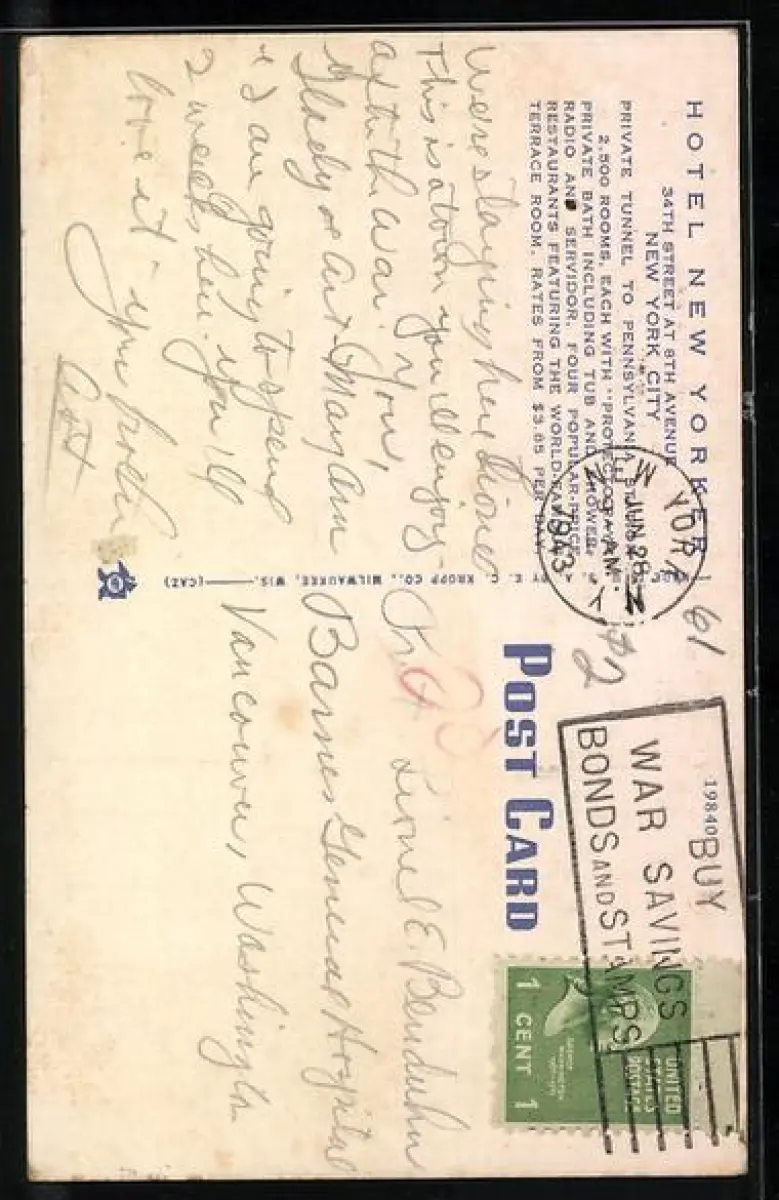 HOTEL NEW YORKER
34TH STREET AT 8TH AVENUE
NEW YORK CITY
PRIVATE TUNNEL TO PENNSYLVANIA STATION
2,500 ROOMS, EACH WITH "PROTECTO-RAY"
PRIVATE BATH INCLUDING TUB AND SHOWER,
RADIO AND SERVIDOR. FOUR POPULAR-PRICE
RESTAURANTS FEATURING THE WORLD-FAMOUS
TERRACE ROOM. RATES FROM $3.85 PER DAY.
We're staying here Lionel
This is a town you'll enjoy
after the war. You,
Gladys or Art. Mary Ann
& I am going to spend
2 weeks here. You'll
love it - your brother
Art
NEW YORK
JUN 28
AM
1943
N Y
61
#2
19840
BUY
WAR SAVINGS
BONDS AND STAMPS
UNITED
STATES
POSTAGE
GEORGE
WASHINGTON
1 CENT 1
POST CARD
Lionel E. Benduhn
Barnes General Hospital
Vancouver, Washington
BY E. C. KROPP CO., MILWAUKEE, WIS. (CAZ)